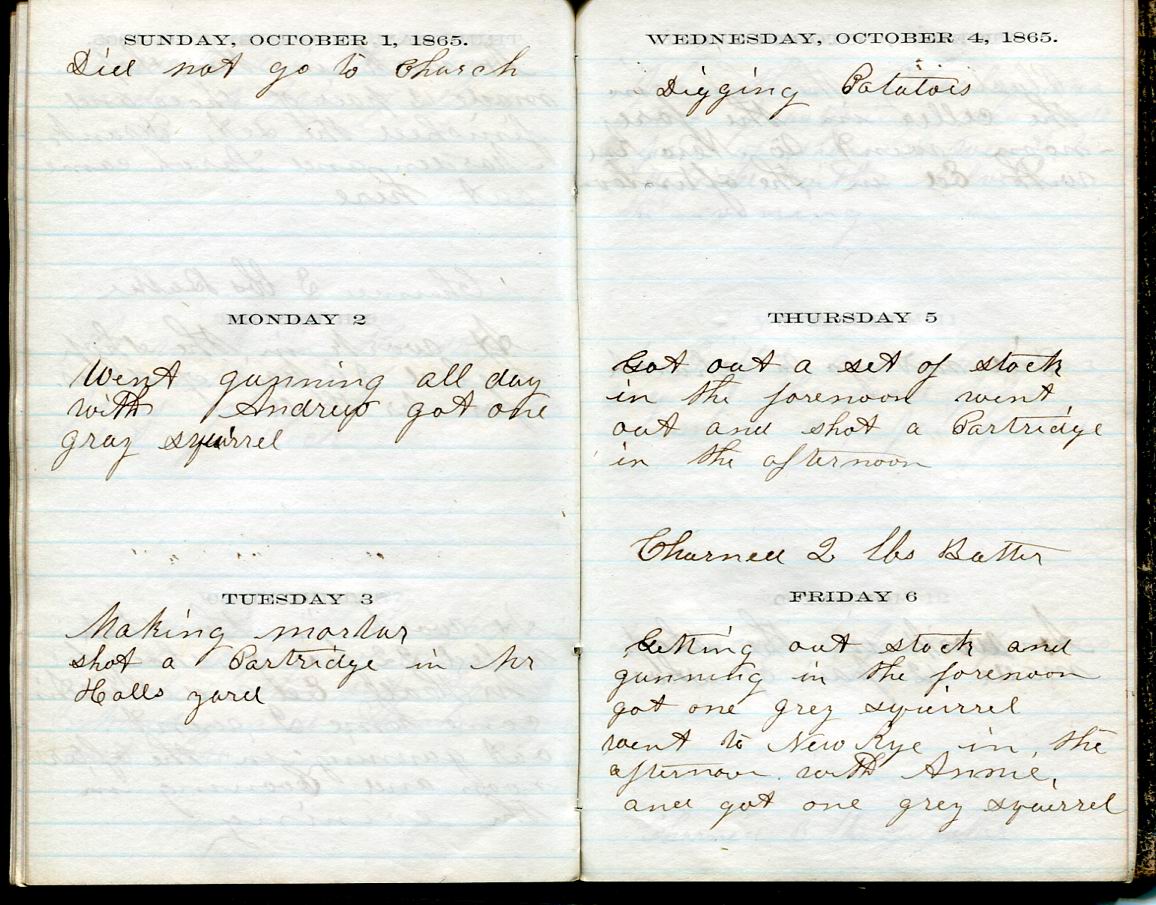 SUNDAY, OCTOBER 1, 1865.
Did not go to Church
MONDAY 2
Went gunning all day
with Andrew got one
gray squirrel
TUESDAY 3
Making mortar
shot a Partridge in Mr
Halls yard
WEDNESDAY, OCTOBER 4, 1865.
Digging Patatois
THURSDAY 5
Got out a set of stock
in the forenoon went
out and shot a Partridge
in the afternoon
Churned 2 lbs Butter
FRIDAY 6
Getting out stock and
gunning in the forenoon
got one grey squirrel
went to New Rye in the
afternoon with Annie,
and got one grey squirrel